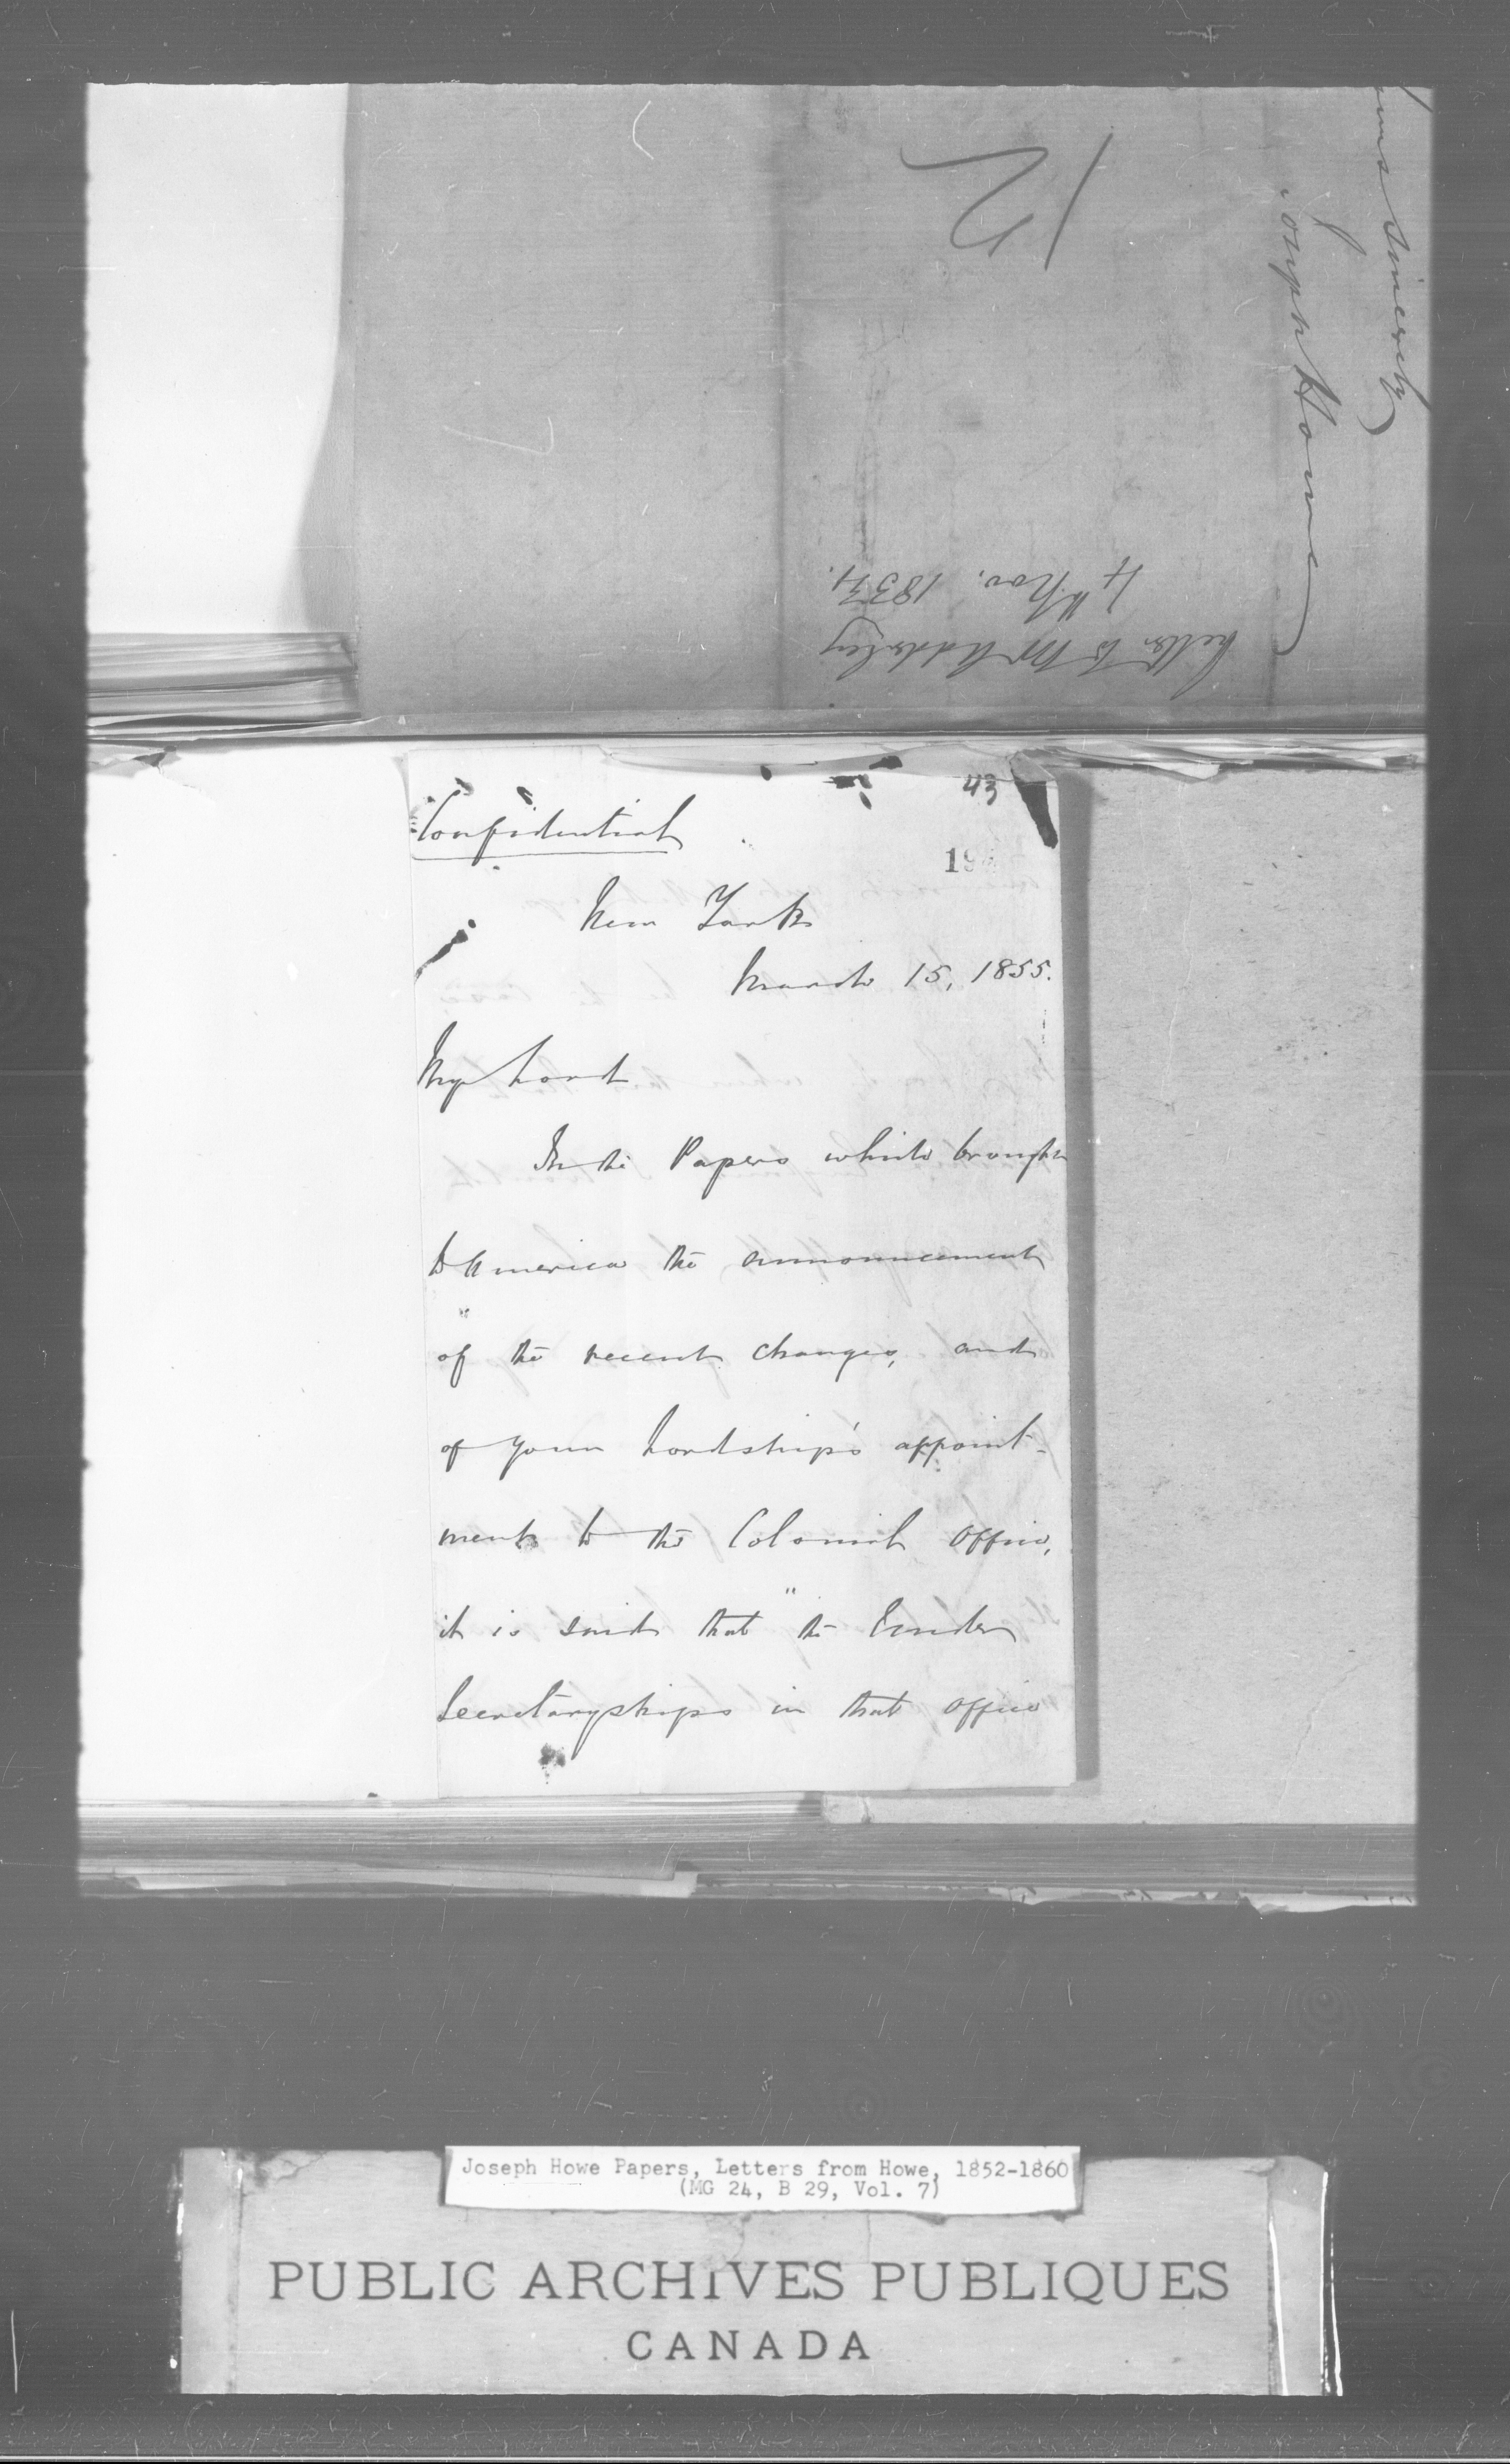 yours sincerely
Joseph Howe
12
Letter to Mr Adderley
4th Nov. 1854.
43
Confidential
New York
March 15, 1855.
My Lord
In the Papers which brought
to America the announcement
of the recent changes, and
of your Lordship's appoint-
ment to the Colonial Office,
it is said that "the Under
Secretaryships in that office
Joseph Howe Papers, Letters from Howe, 1852-1860
(MG 24, B 29, Vol. 7)
PUBLIC ARCHIVES PUBLIQUES
CANADA